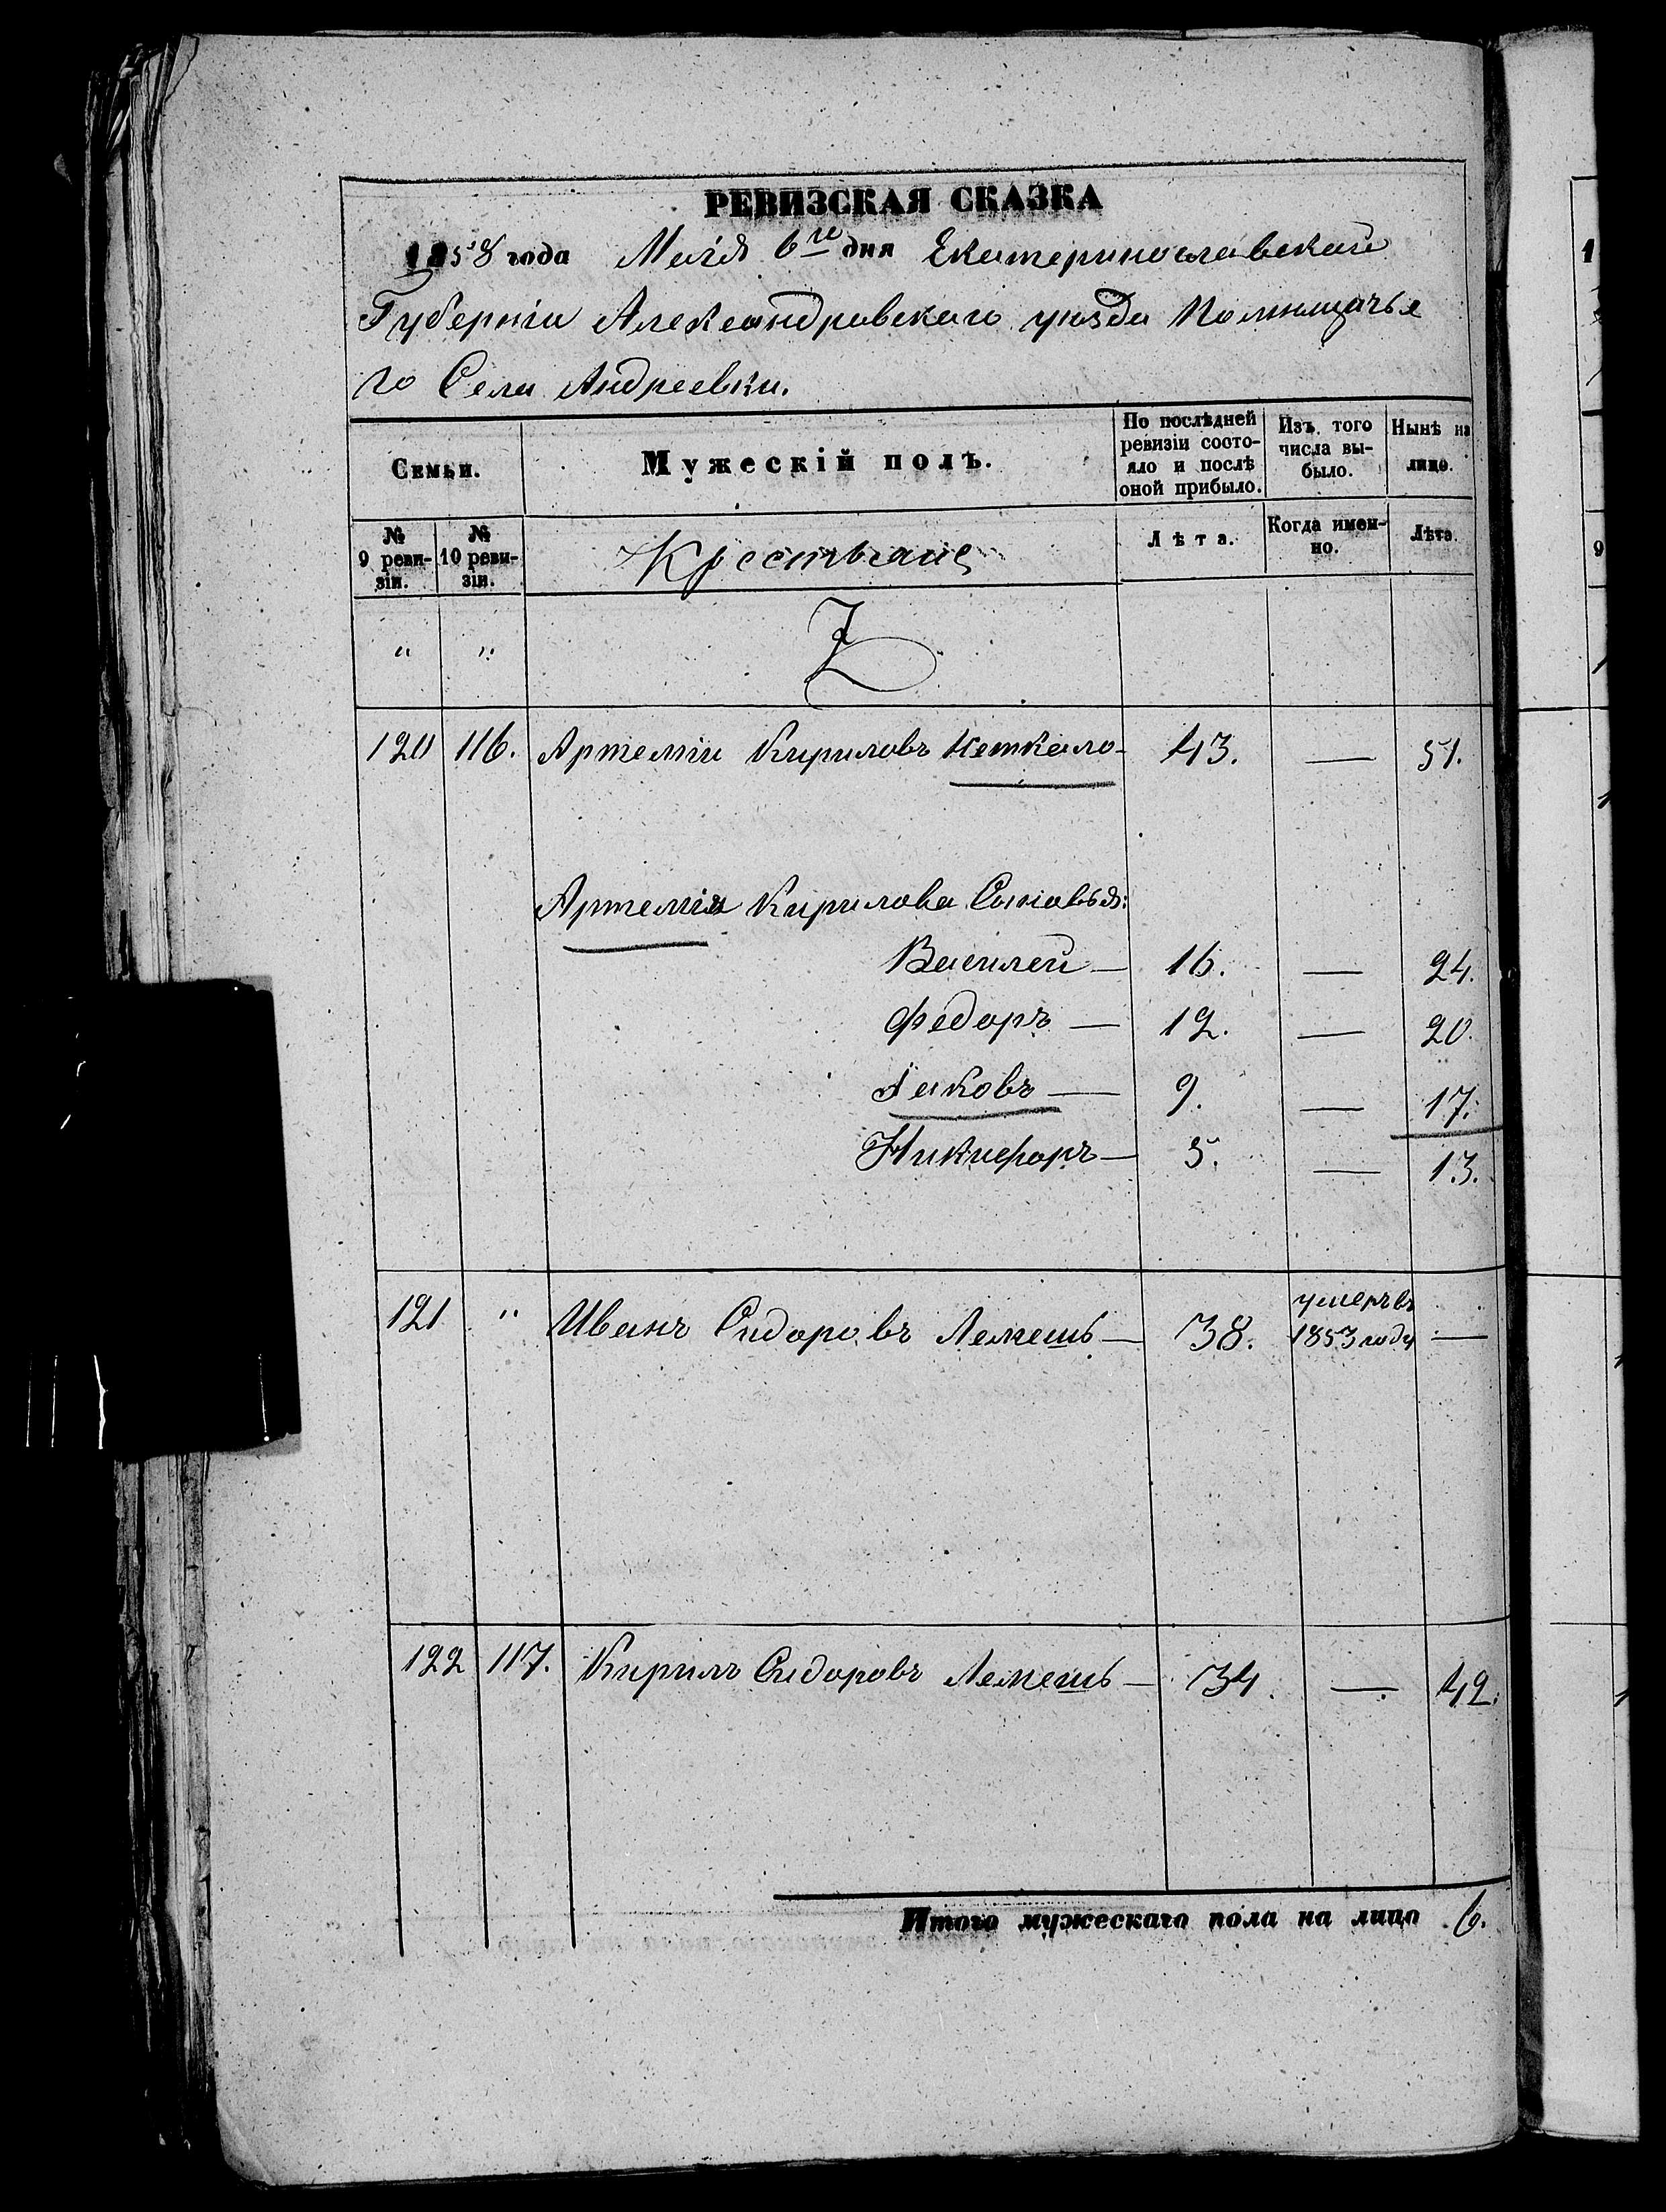 РЕВИЗСКАЯ СКАЗКА
1858 года Маія 6го дня Екатеринославской
Губерніи Александровскаго уѣзда Помѣщичья
го Села Андреевки.
Семьи.
Мужескій полъ.
По послѣдней
ревизіи состо-
яло и послѣ
оной прибыло.
Изъ того
числа вы-
было.
Нынѣ на
лицо.
№
9 реви-
зіи.
№
10 реви-
зіи.
Крестьяне
Лѣта.
Когда имен-
но.
Лѣта.
" "
120 116. Артемій Кириловъ Кеткало — 43. — 51.
Артемія Кирилова Сыновья:
Василей — 16. — 24.
Федоръ — 12. — 20.
Іаковъ — 9. — 17.
Никифоръ — 5. — 13.
121 " Иванъ Сидоровъ Лемешь — 38. умеръ въ
1853 году —
122 117. Кирилъ Сидоровъ Лемешь — 34. — 42.
Итого мужескаго пола на лицо 6.
1
9